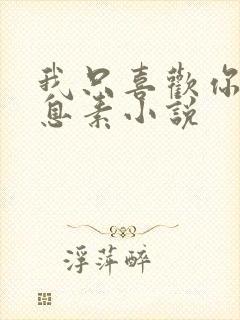 我只喜歡你
息素小說
浮萍醉